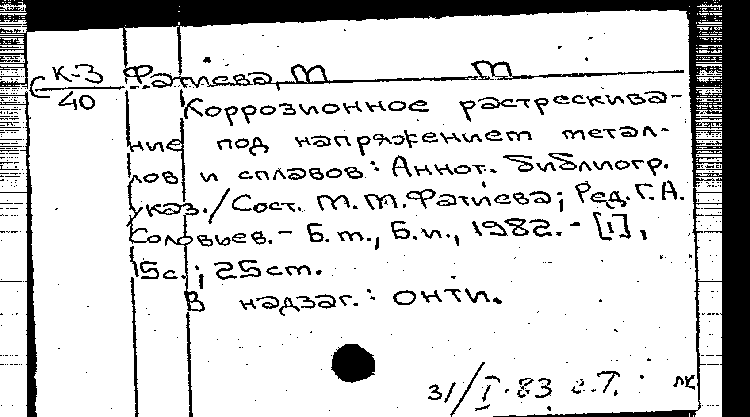 С К-3 Фатиева, М М
40
Коррозионное растрескива-
ние под напряжением метал-
лов и сплавов: Аннот. библиогр.
указ./Сост. М.М.Фатиева; Ред. Г.А.
Соловьев.- Б.м., Б.и., 1982.- [1],
15с.; 25см.
В надзаг.: ОНТИ.
31/I-83 с.7. лк